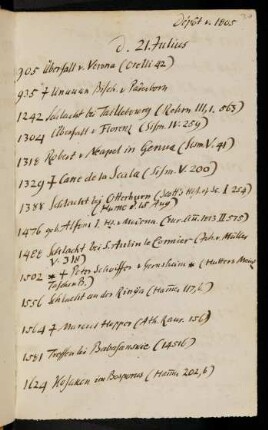 d. 21. Julius
905 Überfall v. Verona (Orelli 42)
935 † Unwan Bisch. v. Paderborn
1242 Schlacht bei Taillebourg (Rehm III, 1, 563)
1304 Überfall v. Florenz (Sism. IV. 259)
1318 Robert v. Neapel in Genua (Sism V. 41)
1329 † Cane de la Scala (Sism. V. 200)
1388 Schlacht bei Otterburn (Scott's H. of Sc. I 254)
(Hume d. 15 Aug)
1476 geb. Alfons I. Hz. v.
1488 Schlacht bei S. Aubin le Cormier (Joh. v. Müller
V. 318)
1502 * † Peter Schöffer v. Gernsheim * (
1556 Schlacht an der
1564 † Marcus Hopper (Ath. Raur. 156)
1581 Treffen bei
1624 Kosaken im Bosporus (Hamm. 202, 6)